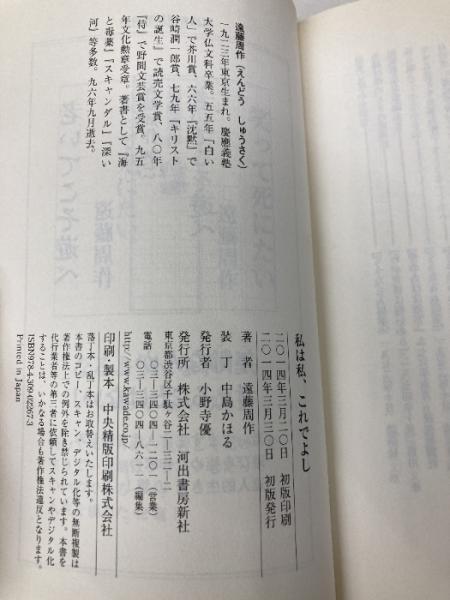 遠藤周作（えんどう しゅうさく）
一九二三年東京生まれ。慶應義塾
大学仏文科卒業。五五年「白い
人」で芥川賞、六六年『沈黙』で
谷崎潤一郎賞、七九年『キリスト
の誕生』で読売文学賞、八〇年
『侍』で野間文芸賞を受賞。九五
年文化勲章受章。著書として『海
と毒薬』『スキャンダル』『深い
河』等多数。九六年九月逝去。
私は私、これでよし
二〇一四年三月二〇日 初版印刷
二〇一四年三月三〇日 初版発行
著 者 遠藤周作
装 丁 中島かほる
発行者 小野寺優
発行所 株式会社 河出書房新社
東京都渋谷区千駄ヶ谷二-三二-二
電話 〇三-三四〇四-一二〇一（営業）
〇三-三四〇四-八六一一（編集）
http://www.kawade.co.jp/
印刷・製本 中央精版印刷株式会社
落丁本・乱丁本はお取替えいたします。
本書のコピー、スキャン、デジタル化等の無断複製は
著作権法上での例外を除き禁じられています。本書を
代行業者等の第三者に依頼してスキャンやデジタル化
することは、いかなる場合も著作権法違反となります。
ISBN978-4-309-02267-3
Printed in Japan